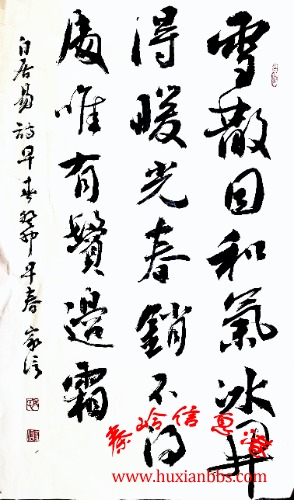 雪散因和氣冰開
得暖光春銷不得
處唯有鬢邊霜
白居易詩早春癸卯早春家信
秦岭信息港
www.huxianbbs.com